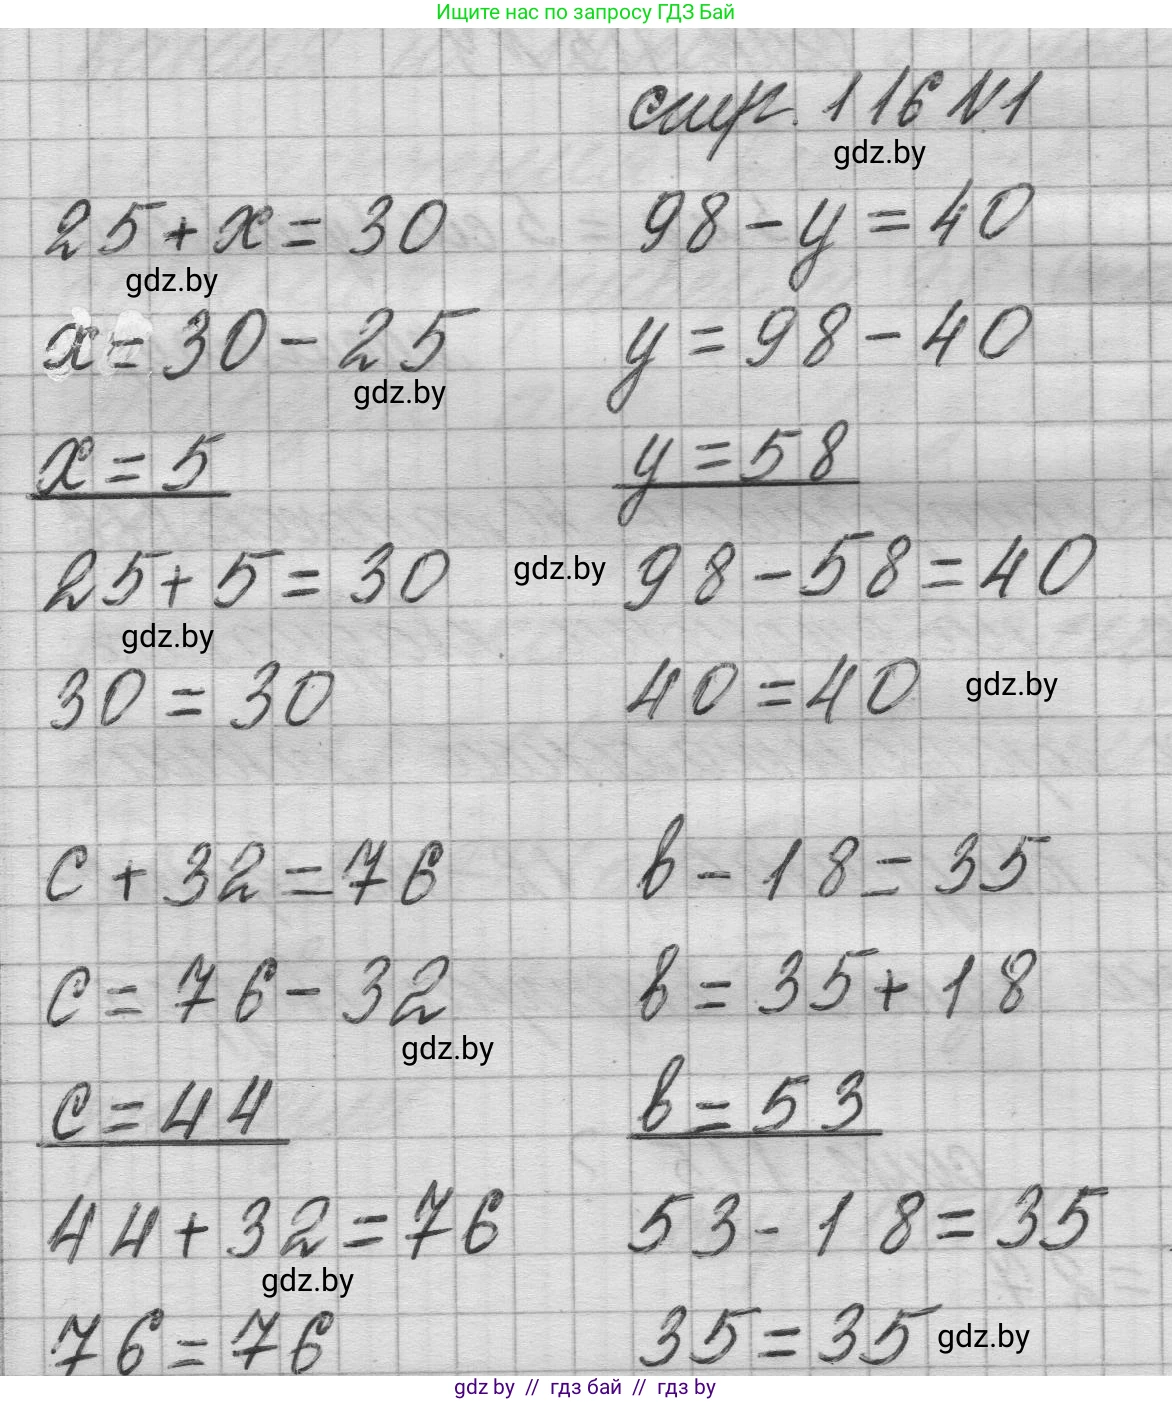 Ищите нас по запросу ГДЗ Бай
стр. 116 №1
gdz.by
25 + x = 30
98 - y = 40
gdz.by
x = 30 - 25
y = 98 - 40
gdz.by
x = 5
y = 58
25 + 5 = 30
gdz.by
98 - 58 = 40
gdz.by
30 = 30
40 = 40
gdz.by
c + 32 = 76
b - 18 = 35
c = 76 - 32
b = 35 + 18
gdz.by
c = 44
b = 53
44 + 32 = 76
53 - 18 = 35
gdz.by
76 = 76
35 = 35
gdz.by
gdz by // гдз бай // гдз by